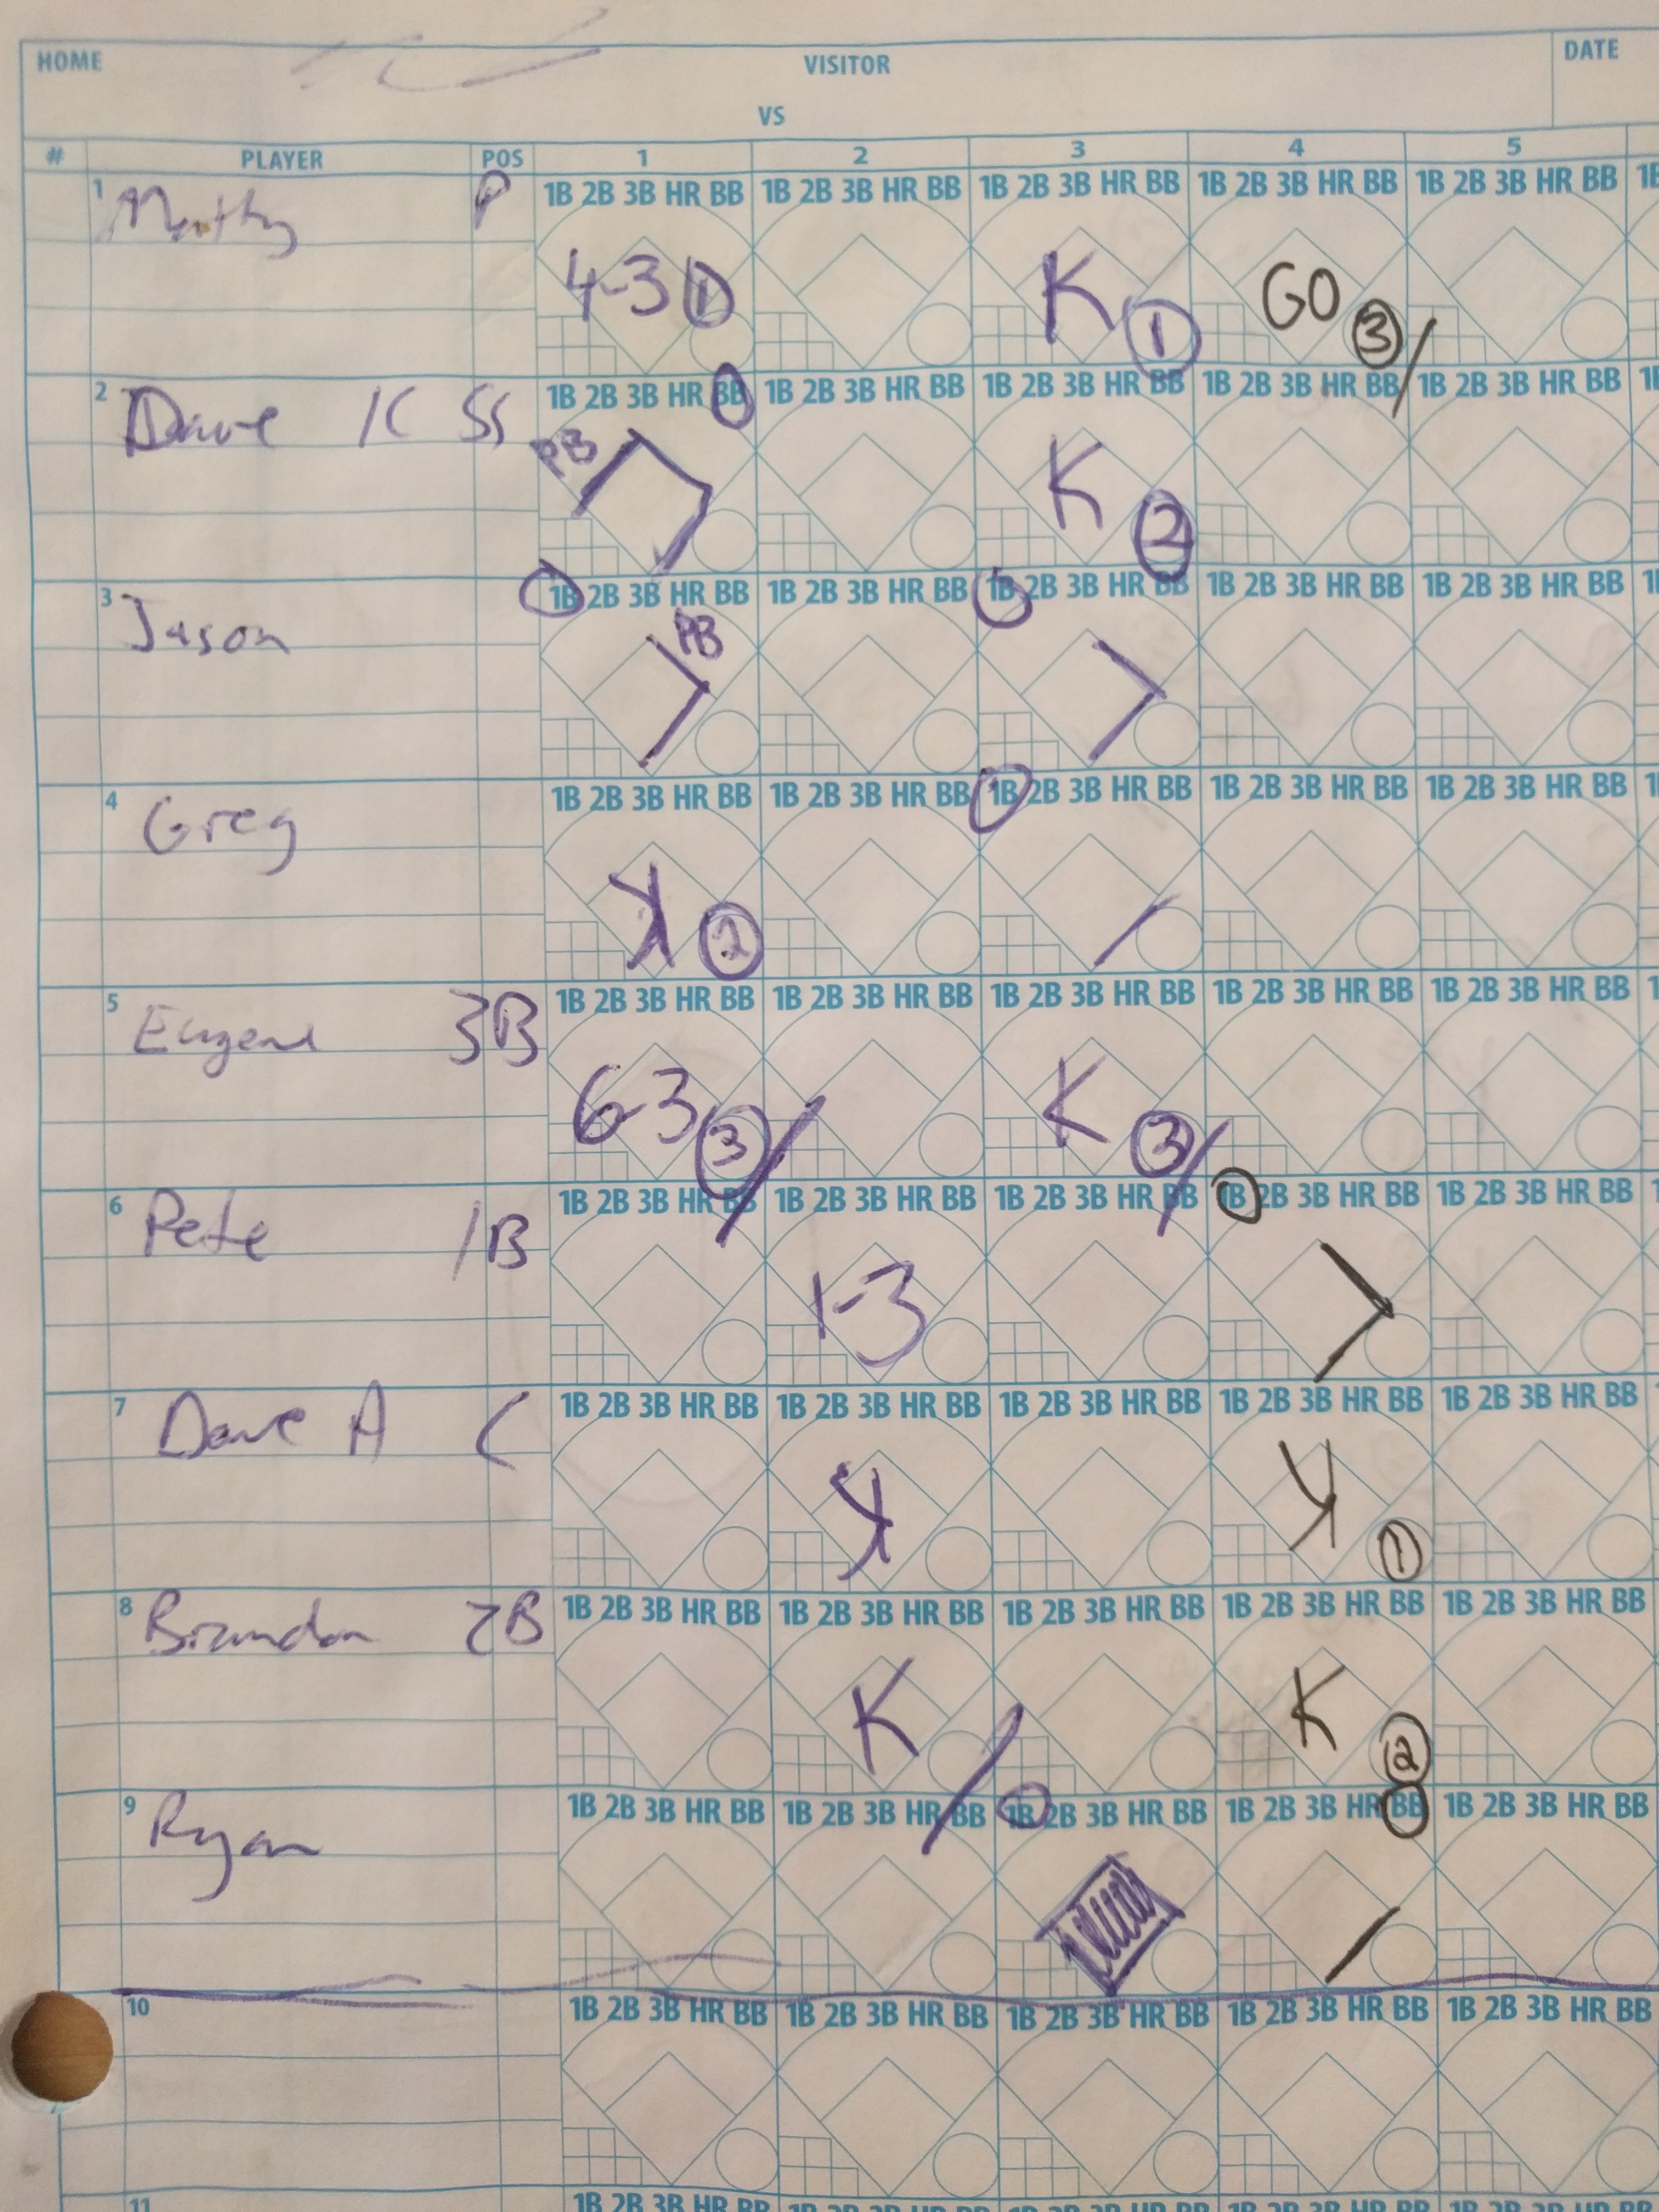 HOME VISITOR DATE
VS
# PLAYER POS 1 2 3 4 5
1 P 1B 2B 3B HR BB 1B 2B 3B HR BB 1B 2B 3B HR BB 1B 2B 3B HR BB 1B 2B 3B HR BB 1B
4-3 1 K 1 GO 3
2 Dave K SS 1B 2B 3B HR BB 1B 2B 3B HR BB 1B 2B 3B HR BB 1B 2B 3B HR BB 1B 2B 3B HR BB 1B
PB K 2
3 Jason 1B 2B 3B HR BB 1B 2B 3B HR BB 1B 2B 3B HR BB 1B 2B 3B HR BB 1B 2B 3B HR BB 1B
PB
4 Greg 1B 2B 3B HR BB 1B 2B 3B HR BB 1B 2B 3B HR BB 1B 2B 3B HR BB 1B 2B 3B HR BB 1B
K 2
5 Eugene 3B 1B 2B 3B HR BB 1B 2B 3B HR BB 1B 2B 3B HR BB 1B 2B 3B HR BB 1B 2B 3B HR BB 1
6-3 3 K 3
6 Pete 1B 1B 2B 3B HR BB 1B 2B 3B HR BB 1B 2B 3B HR BB 1B 2B 3B HR BB 1B 2B 3B HR BB
1-3
7 Dave A C 1B 2B 3B HR BB 1B 2B 3B HR BB 1B 2B 3B HR BB 1B 2B 3B HR BB 1B 2B 3B HR BB
K K 1
8 Brandon 2B 1B 2B 3B HR BB 1B 2B 3B HR BB 1B 2B 3B HR BB 1B 2B 3B HR BB 1B 2B 3B HR BB
K K 2
9 Ryan 1B 2B 3B HR BB 1B 2B 3B HR BB 1B 2B 3B HR BB 1B 2B 3B HR BB 1B 2B 3B HR BB
10 1B 2B 3B HR BB 1B 2B 3B HR BB 1B 2B 3B HR BB 1B 2B 3B HR BB 1B 2B 3B HR BB
11 1B 2B 3B HR BB